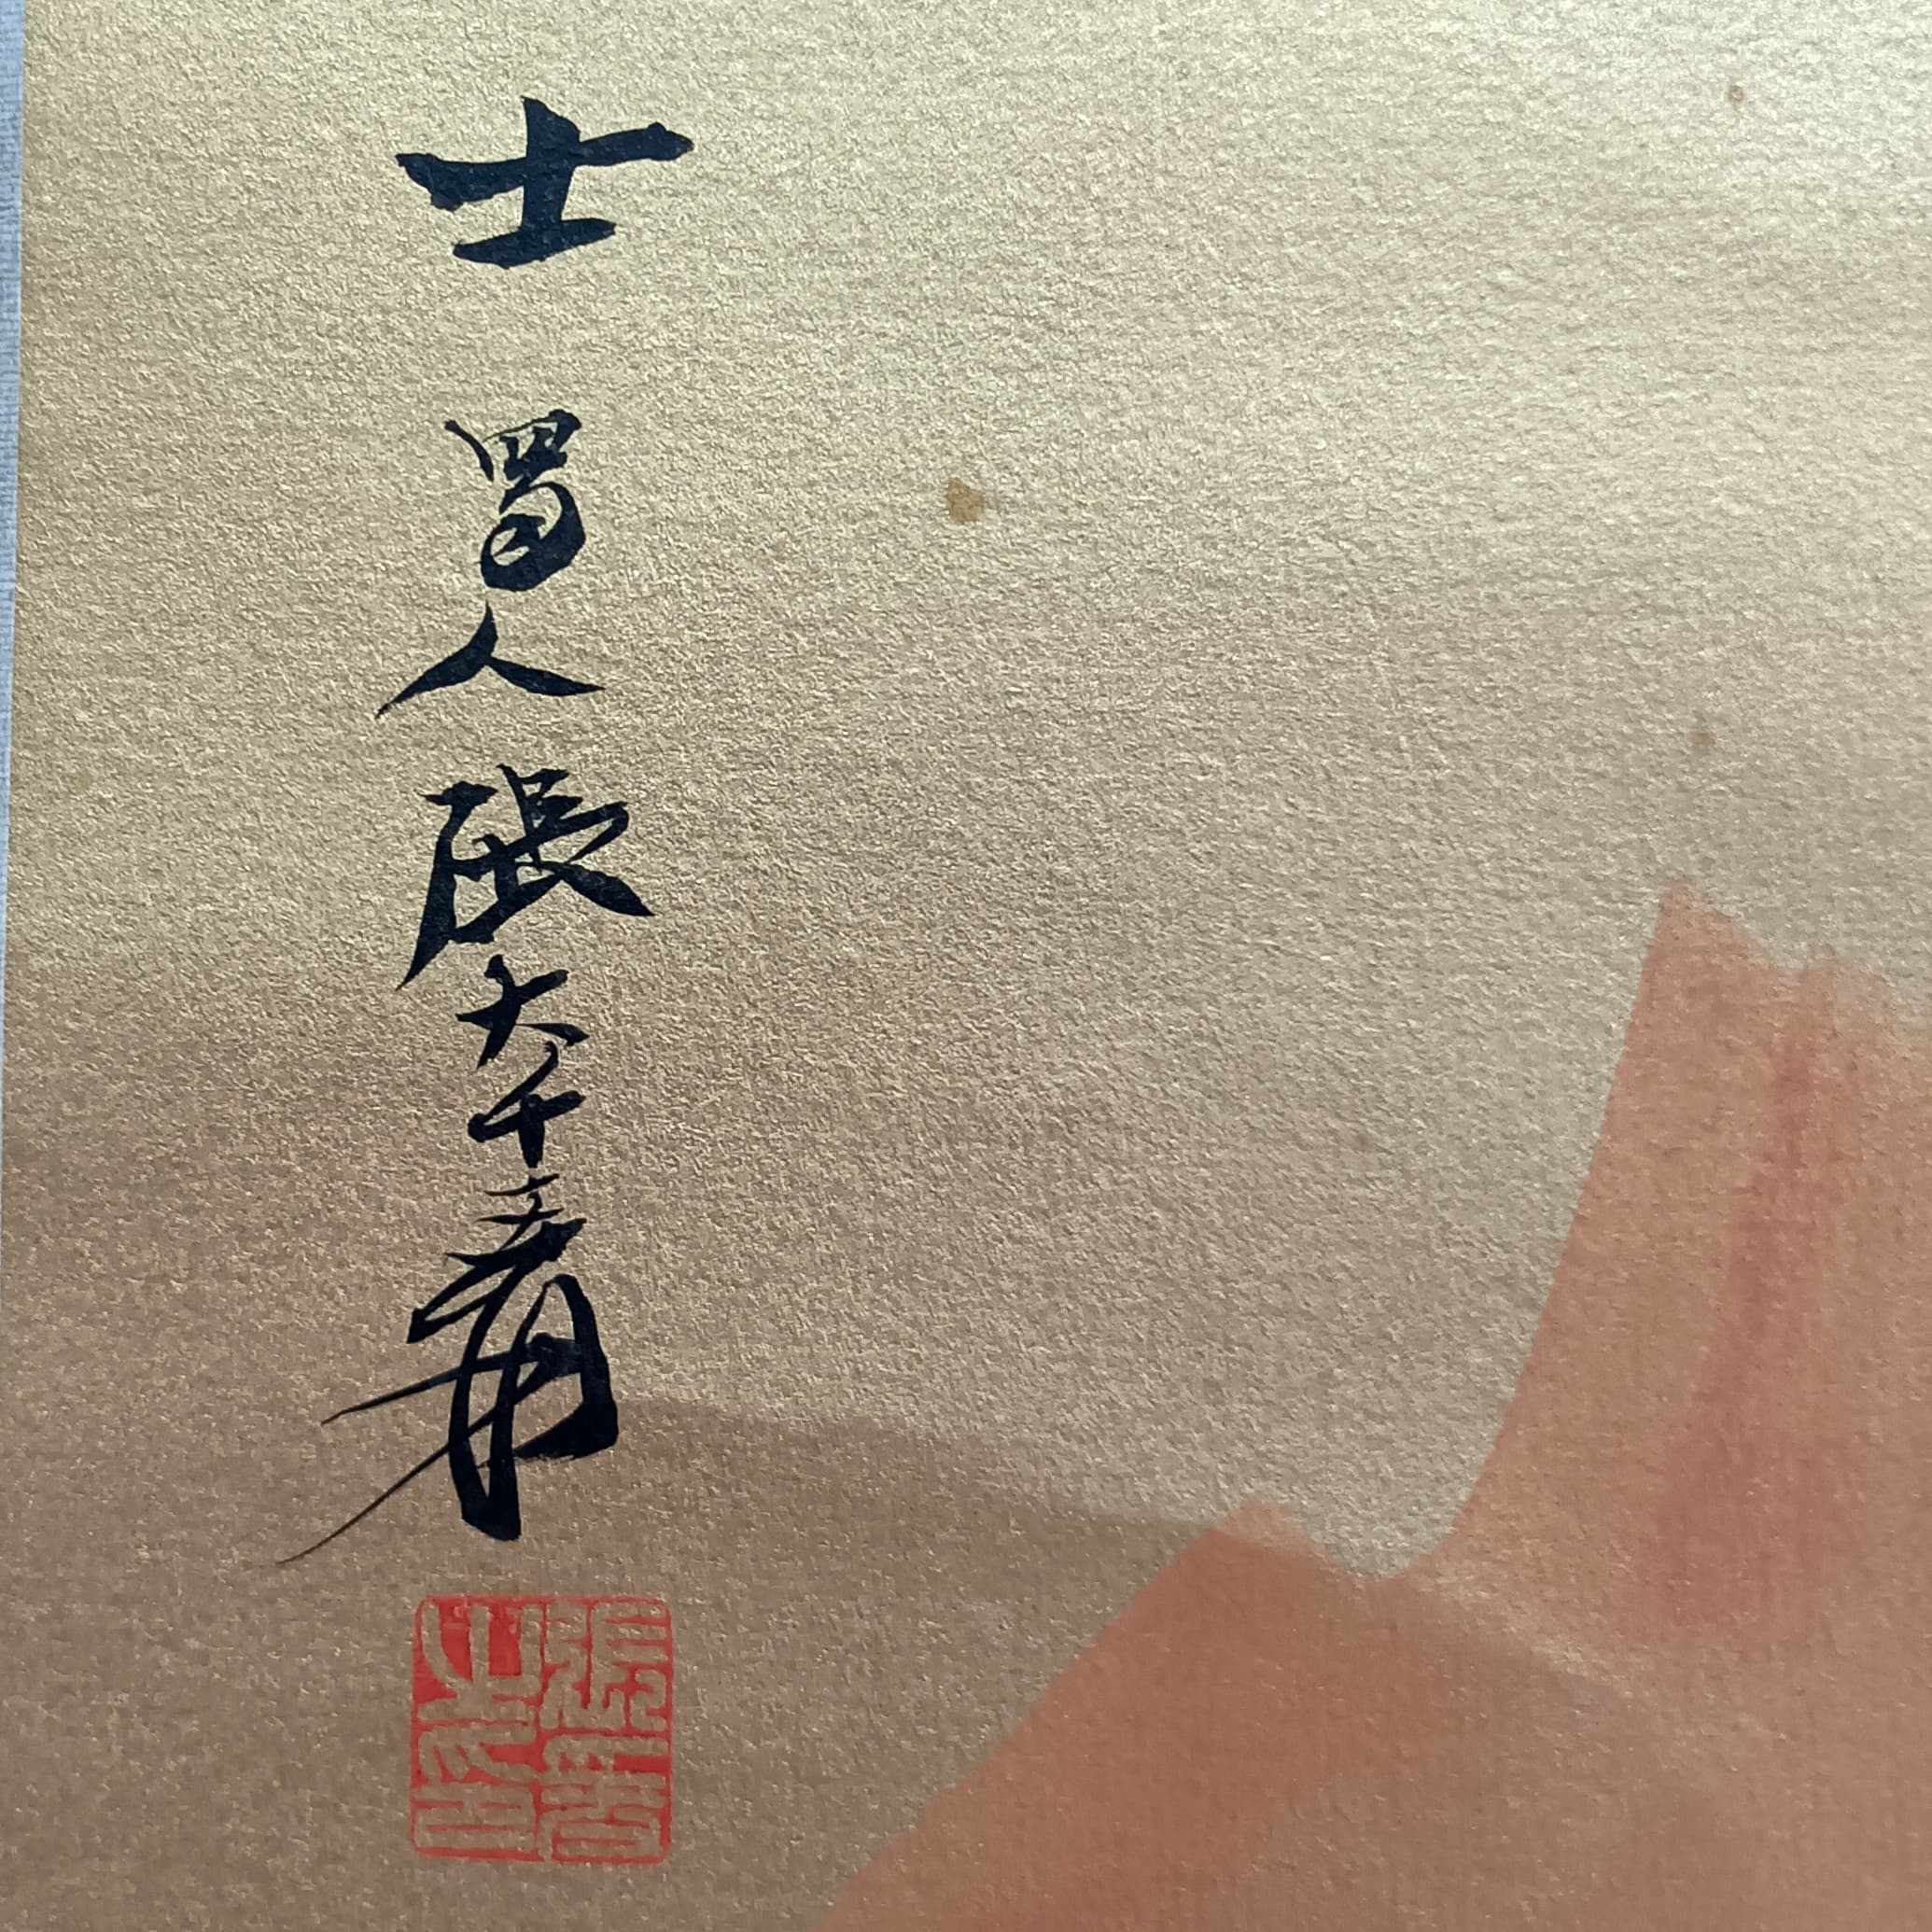 士 蜀人張大千爰
張爰
之印